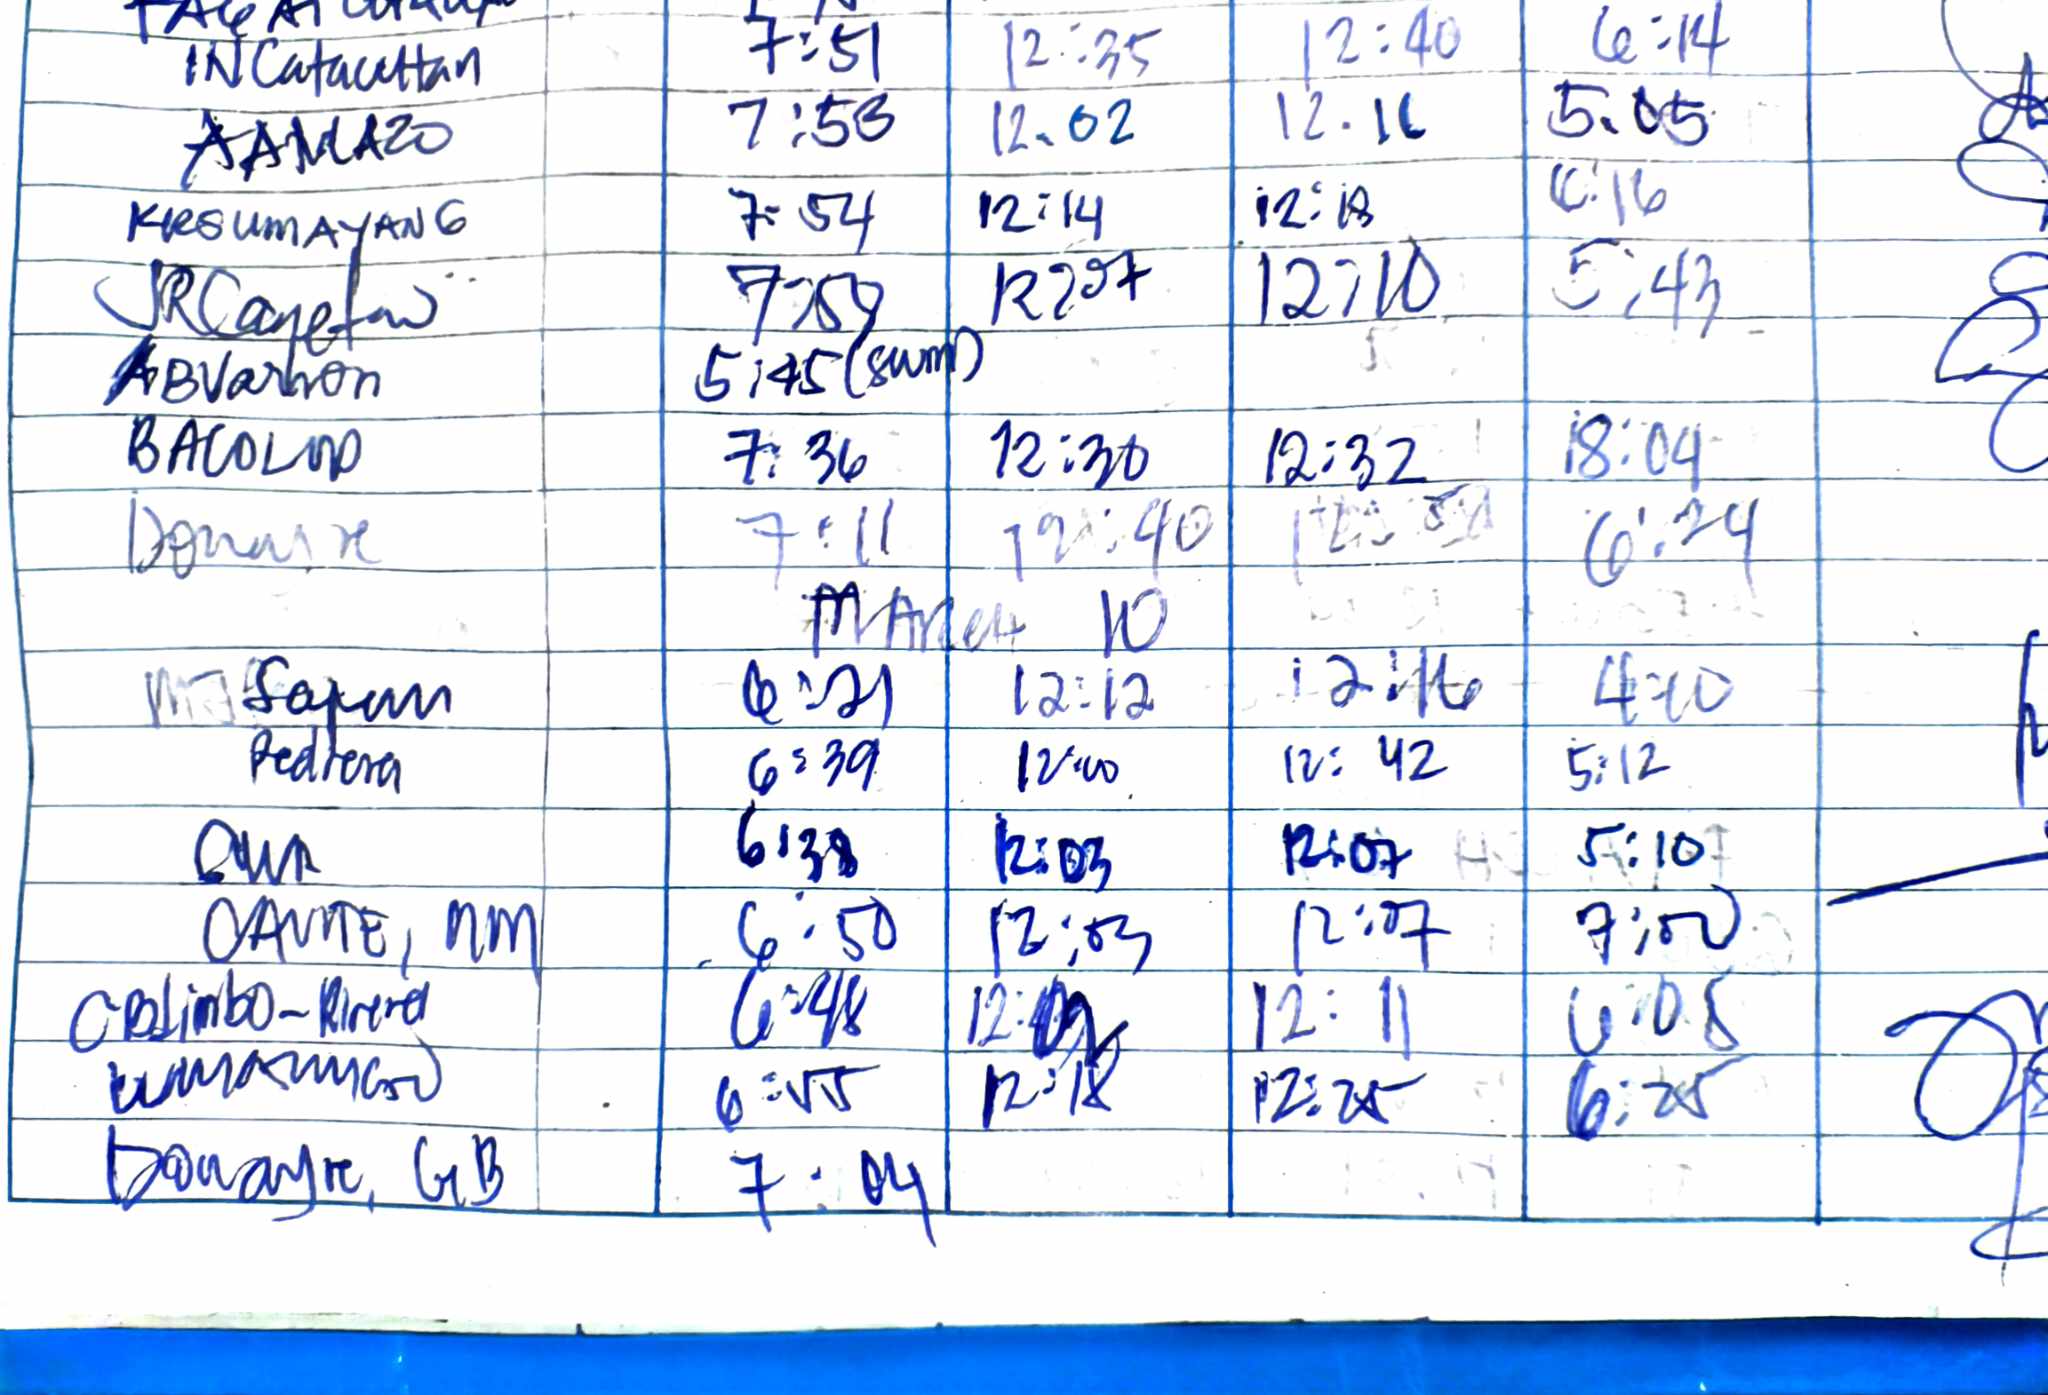 INCatacuttan 7:51 12:35 12:40 6:14
7:53 12.02 12.16 5.05
KRSUMAYANG 7:54 12:14 12:18 6:16
JRCayetano 7:59 12:07 12:10 5:43
ABVarron 5:45 (swm)
BACOLOD 7:36 12:30 12:32 18:04
Donayre 7:11 12:40 6:24
MARCH 10
Sapun 6:21 12:12 12:16 4:10
Pedrera 6:39 12:40 12:42 5:12
6:38 12:03 12:07 5:10
CAVITE, NM 6:50 12:03 12:07 7:00
CBLimbo-Rivera 6:48 12:09 12:11 6:08
6:55 12:18 12:25 6:25
Donayre, GB 7:04